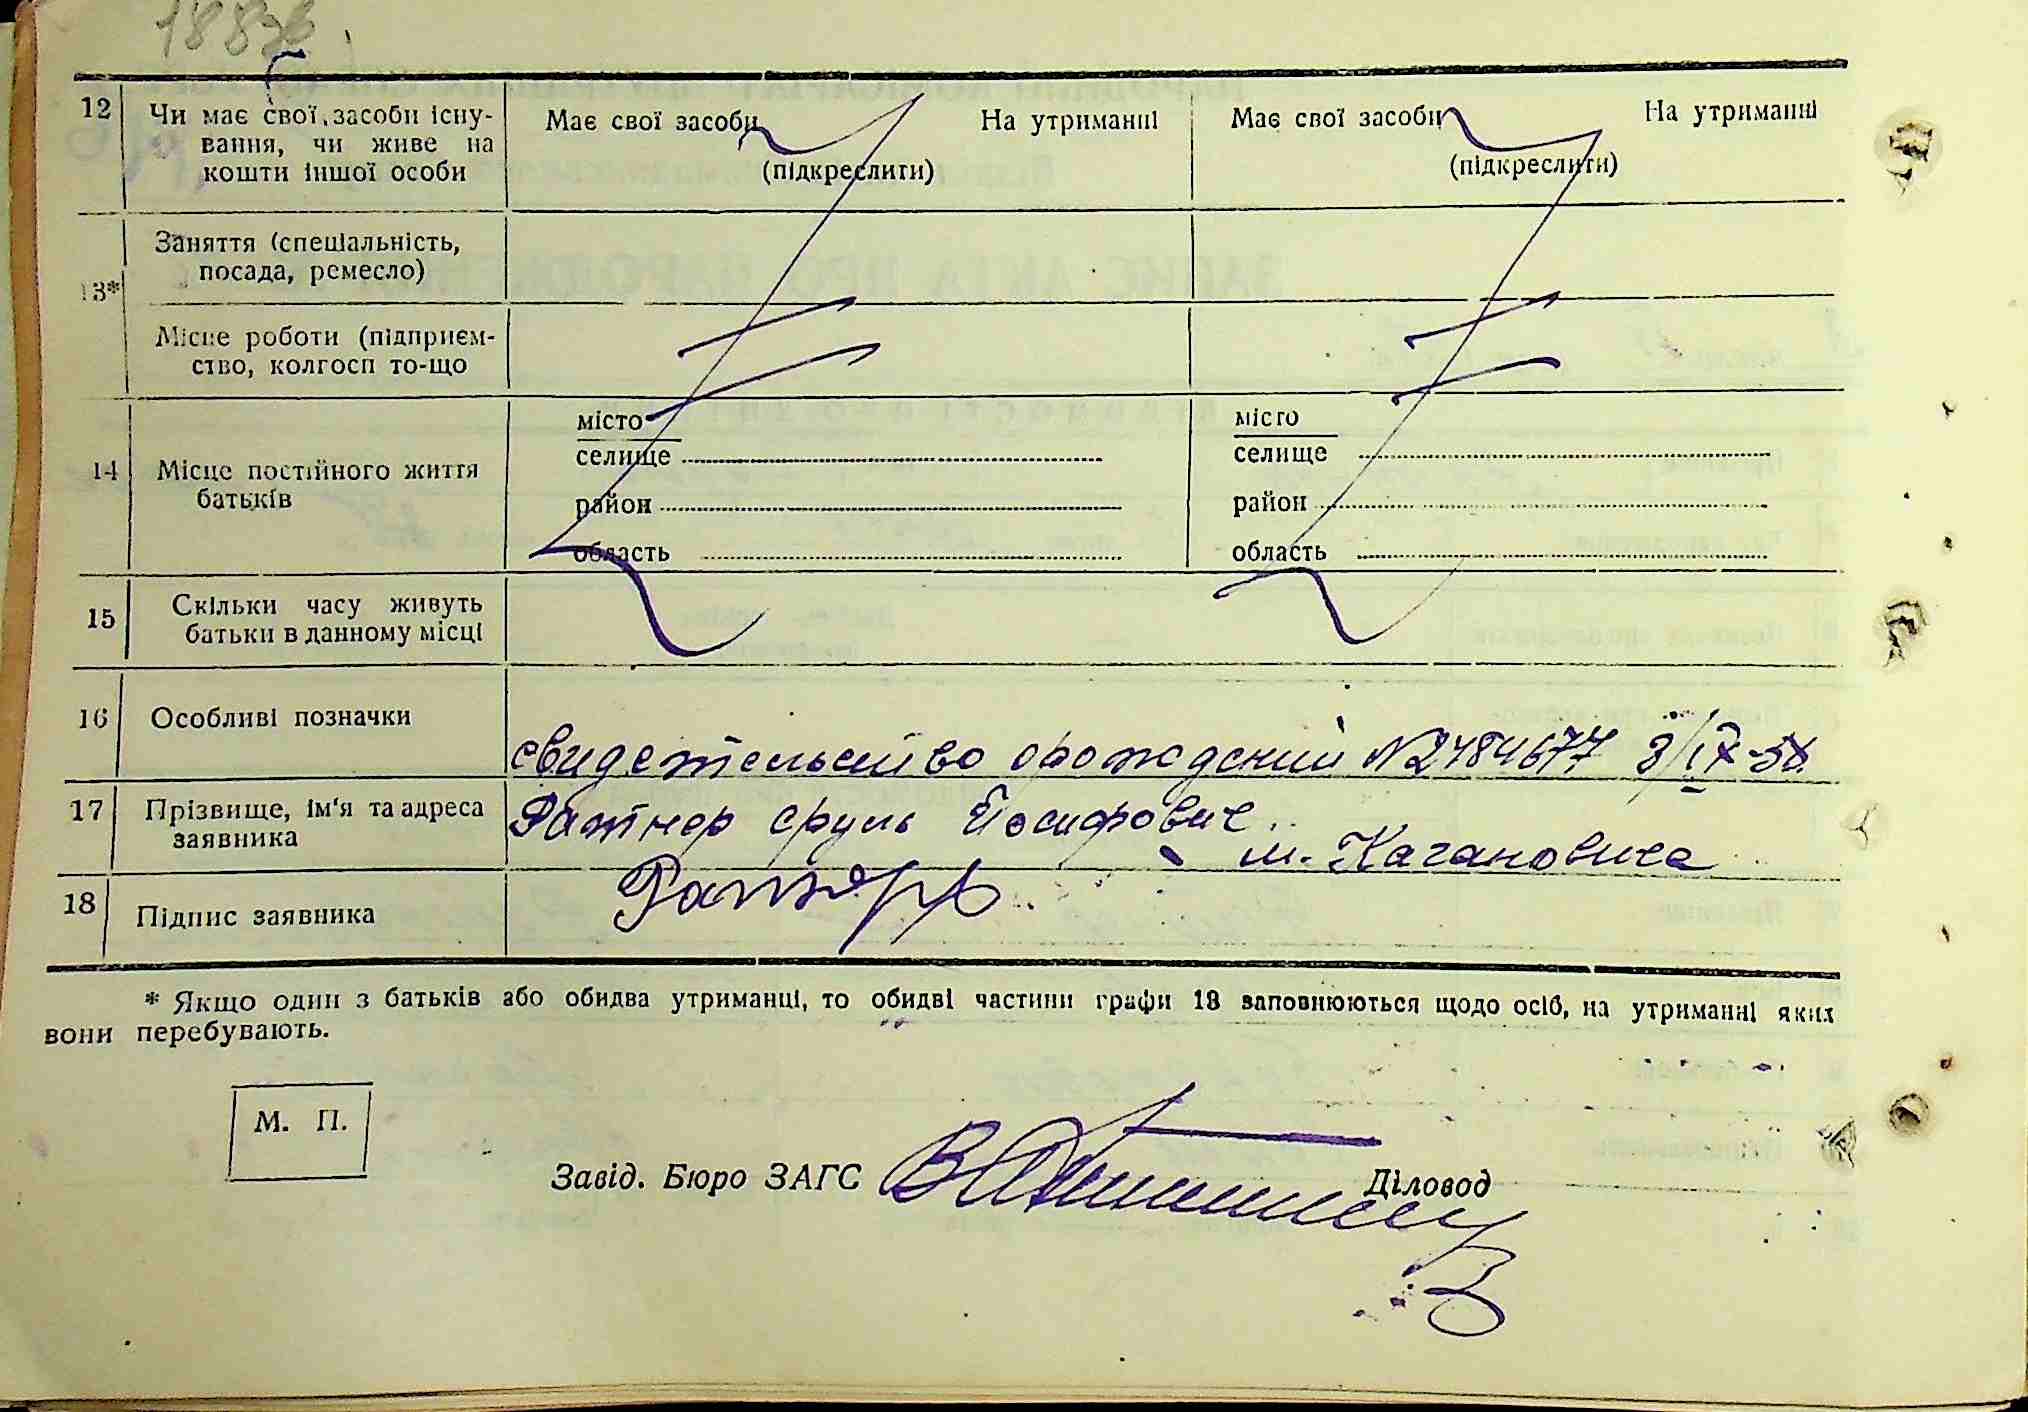 1883б
12
Чи має свої засоби існу-
вання, чи живе на
кошти іншої особи
Має свої засоби На утриманні
(підкреслити)
Має свої засоби На утриманні
(підкреслити)
13*
Заняття (спеціальність,
посада, ремесло)
Місце роботи (підприєм-
ство, колгосп то-що
14
Місце постійного життя
батьків
місто
селище
район
область
місто
селище
район
область
15
Скільки часу живуть
батьки в данному місці
16
Особливі позначки
свидетельство орождений №2484677 8/IX-58
17
Прізвище, ім'я та адреса
заявника
Ратнер Сруль Иосифович
м. Кагановича
18
Підпис заявника
Ратнер
* Якщо один з батьків або обидва утриманці, то обидві частини графи 13 заповнюються щодо осіб, на утриманні яких
вони перебувають.
М. П.
Завід. Бюро ЗАГС Діловод